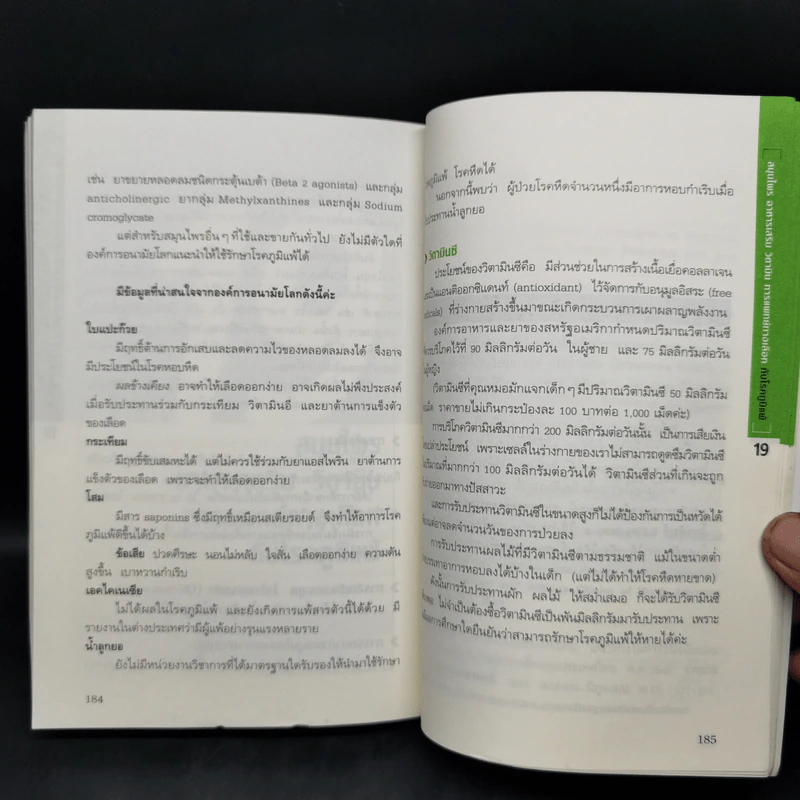 เช่น ยาขยายหลอดลมชนิดกระตุ้นเบต้า (Beta 2 agonists) และกลุ่ม
anticholinergic ยากลุ่ม Methylxanthines และกลุ่ม Sodium
cromoglycate
แต่สำหรับสมุนไพรอื่นๆ ที่ใช้และขายกันทั่วไป ยังไม่มีตัวใดที่
องค์การอนามัยโลกแนะนำให้ใช้รักษาโรคภูมิแพ้ได้
มีข้อมูลที่น่าสนใจจากองค์การอนามัยโลกดังนี้ค่ะ
ใบแปะก๊วย
มีฤทธิ์ต้านการอักเสบและลดความไวของหลอดลมลงได้ จึงอาจ
มีประโยชน์ในโรคหอบหืด
ผลข้างเคียง อาจทำให้เลือดออกง่าย อาจเกิดผลไม่พึงประสงค์
เมื่อรับประทานร่วมกับกระเทียม วิตามินอี และยาต้านการแข็งตัว
ของเลือด
กระเทียม
มีฤทธิ์ขับเสมหะได้ แต่ไม่ควรใช้ร่วมกับยาแอสไพริน ยาต้านการ
แข็งตัวของเลือด เพราะจะทำให้เลือดออกง่าย
โสม
มีสาร saponins ซึ่งมีฤทธิ์เหมือนสเตียรอยด์ จึงทำให้อาการโรค
ภูมิแพ้ดีขึ้นได้บ้าง
ข้อเสีย ปวดศีรษะ นอนไม่หลับ ใจสั่น เลือดออกง่าย ความดัน
สูงขึ้น เบาหวานกำเริบ
เอคไคเนเซีย
ไม่ได้ผลในโรคภูมิแพ้ และยังเกิดการแพ้สารตัวนี้ได้ด้วย มี
รายงานในต่างประเทศว่ามีผู้แพ้อย่างรุนแรงหลายราย
น้ำลูกยอ
ยังไม่มีหน่วยงานวิชาการที่ได้มาตรฐานใดรับรองให้นำมาใช้รักษา
184
ภูมิแพ้ โรคหืดได้
นอกจากนี้พบว่า ผู้ป่วยโรคหืดจำนวนหนึ่งมีอาการหอบกำเริบเมื่อ
รับประทานน้ำลูกยอ
วิตามินซี
ประโยชน์ของวิตามินซีคือ มีส่วนช่วยในการสร้างเนื้อเยื่อคอลลาเจน
เป็นแอนติออกซิแดนท์ (antioxidant) ไว้จัดการกับอนุมูลอิสระ (free
ที่ร่างกายสร้างขึ้นมาขณะเกิดกระบวนการเผาผลาญพลังงาน
องค์การอาหารและยาของสหรัฐอเมริกากำหนดปริมาณวิตามินซี
บริโภคไว้ที่ 90 มิลลิกรัมต่อวัน ในผู้ชาย และ 75 มิลลิกรัมต่อวัน
ผู้หญิง
(วิตามินซีที่คุณหมอมักแจกเด็กๆ มีปริมาณวิตามินซี 50 มิลลิกรัม
เม็ด ราคาขายไม่เกินกระป๋องละ 100 บาทต่อ 1,000 เม็ดค่ะ)
การบริโภควิตามินซีมากกว่า 200 มิลลิกรัมต่อวันนั้น เป็นการเสียเงิน
ประโยชน์ เพราะเซลล์ในร่างกายของเราไม่สามารถดูดซึมวิตามินซี
ปริมาณที่มากกว่า 100 มิลลิกรัมต่อวันได้ วิตามินซีส่วนที่เกินจะถูก
ออกมาทางปัสสาวะ
และการรับประทานวิตามินซีในขนาดสูงก็ไม่ได้ป้องกันการเป็นหวัดได้
อาจลดจำนวนวันของการป่วยลง
การรับประทานผลไม้ที่มีวิตามินซีตามธรรมชาติ แม้ในขนาดต่ำ
อาการหอบลงได้บ้างในเด็ก (แต่ไม่ได้ทำให้โรคหืดหายขาด)
ดังนั้นการรับประทานผัก ผลไม้ ให้สม่ำเสมอ ก็จะได้รับวิตามินซี
ไม่จำเป็นต้องซื้อวิตามินซีเป็นพันมิลลิกรัมมารับประทาน เพราะ
การศึกษาใดยืนยันว่าสามารถรักษาโรคภูมิแพ้ให้หายได้ค่ะ
185
สมุนไพร อาหารเสริม วิตามิน การแพทย์ทางเลือก กับโรคภูมิแพ้
19